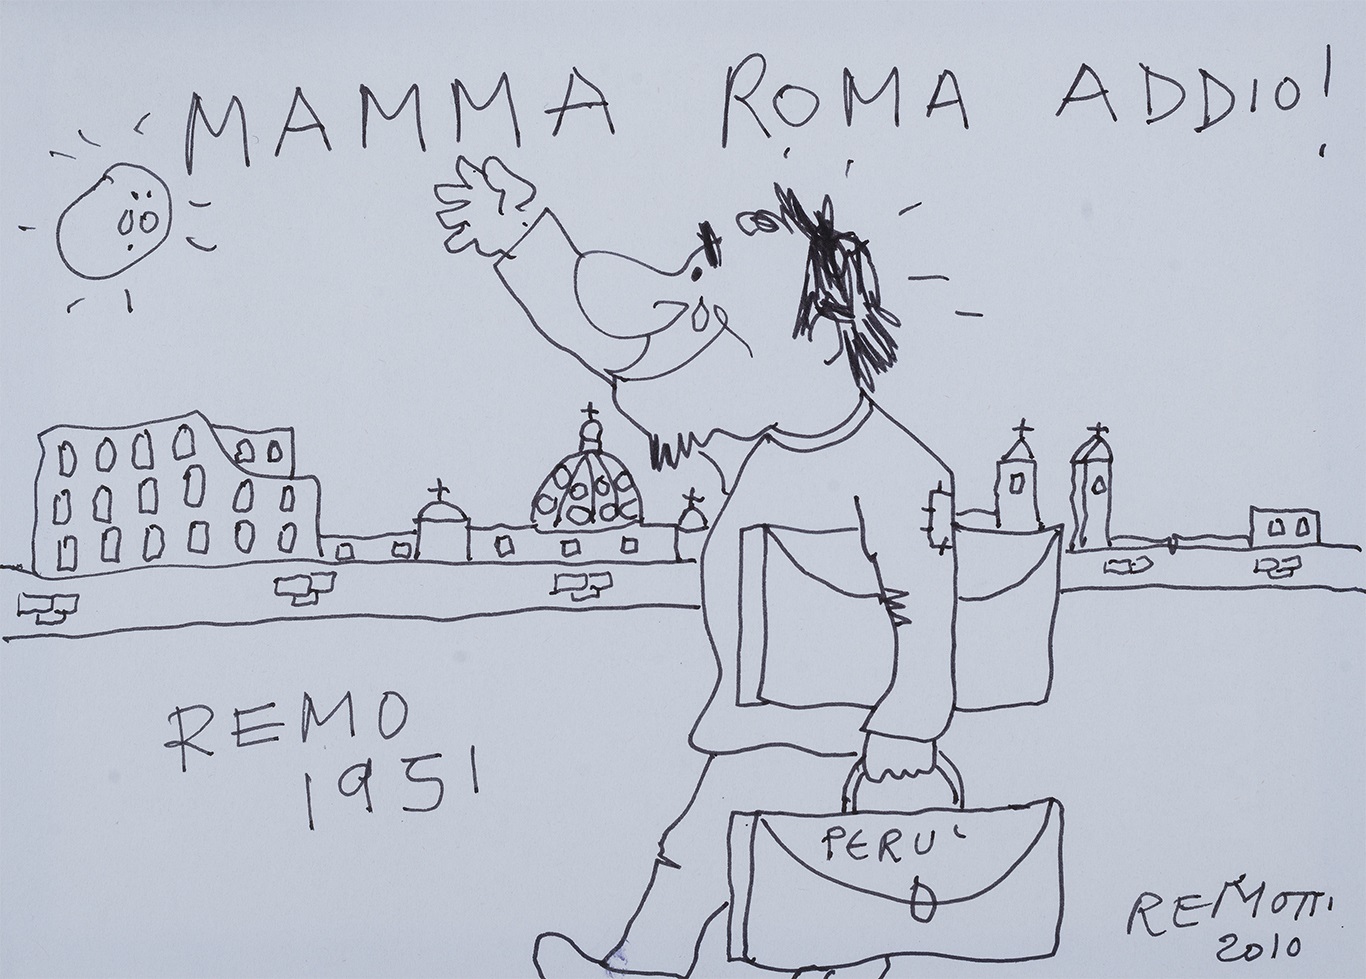 MAMMA ROMA ADDIO!
REMO
1951
PERU'
REMOTTI
2010